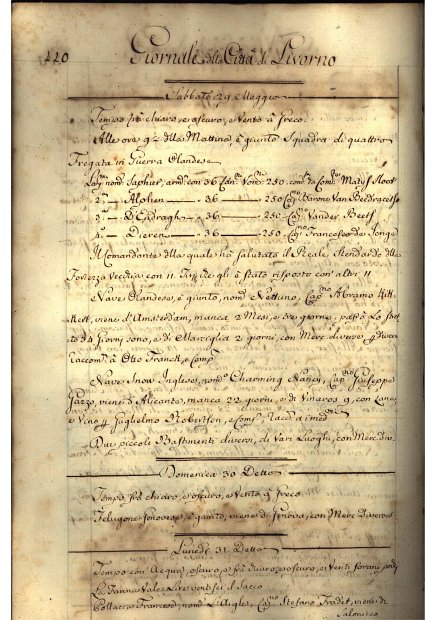 120 Giornale della Città di Livorno
Sabbato 29 Maggio
Tempo frà chiaro, e oscuro, e Vento à Greco.
Alle ore 9½ della Mattina è giunto Squadra di quattro
Fregate in Guerra Olandese
nom. Saphier, arm. con 36 Can. 250. Matijs Sloot
2. — Alphen — 36 — 250 Barone Van
3. — — 36 — 250 Vander Beets
4. — Dieren — 36 — 250. Francesco de Jonge
Il Comandante della quale hà salutato il Reale Stendardo della
Fortezza Vecchia con 11 Tiri, e gli è stato risposto con altri 11
Nave Olandese, è giunto, nom. Nettuno, Cap.no Abramo
viene d'Amsterdam, manca 2 Mesi, e dà
34 giorni sono, e di Marsiglia 2 giorni, con Merc. diverse
à Otto Franck, e Comp.
Nave Snow Inglese, nom. Charming Nancy, Cap.no Giuseppe
viene d'Alicante, manca 22 giorni, e di Vinaros 9, con Lane,
e Vino à Guglielmo Robertson, e Comp.
Due piccoli Bastimenti diversi, di Vari Luoghi, con Merc. div.
Domenica 30 Detto
Tempo frà chiaro, e oscuro, e Vento à Greco
Felugone Genovese, è giunto, viene di Genova, con Merc. Diverse
Lunedì 31 Detto
Tempo con Acqua, oscuro, e frà chiaro, e oscuro, e Venti
La Farina Vale Lire venti il Sacco
Pollacca Francese, nom. L'Aigle, Cap.no Stefano viene di
Salonicco